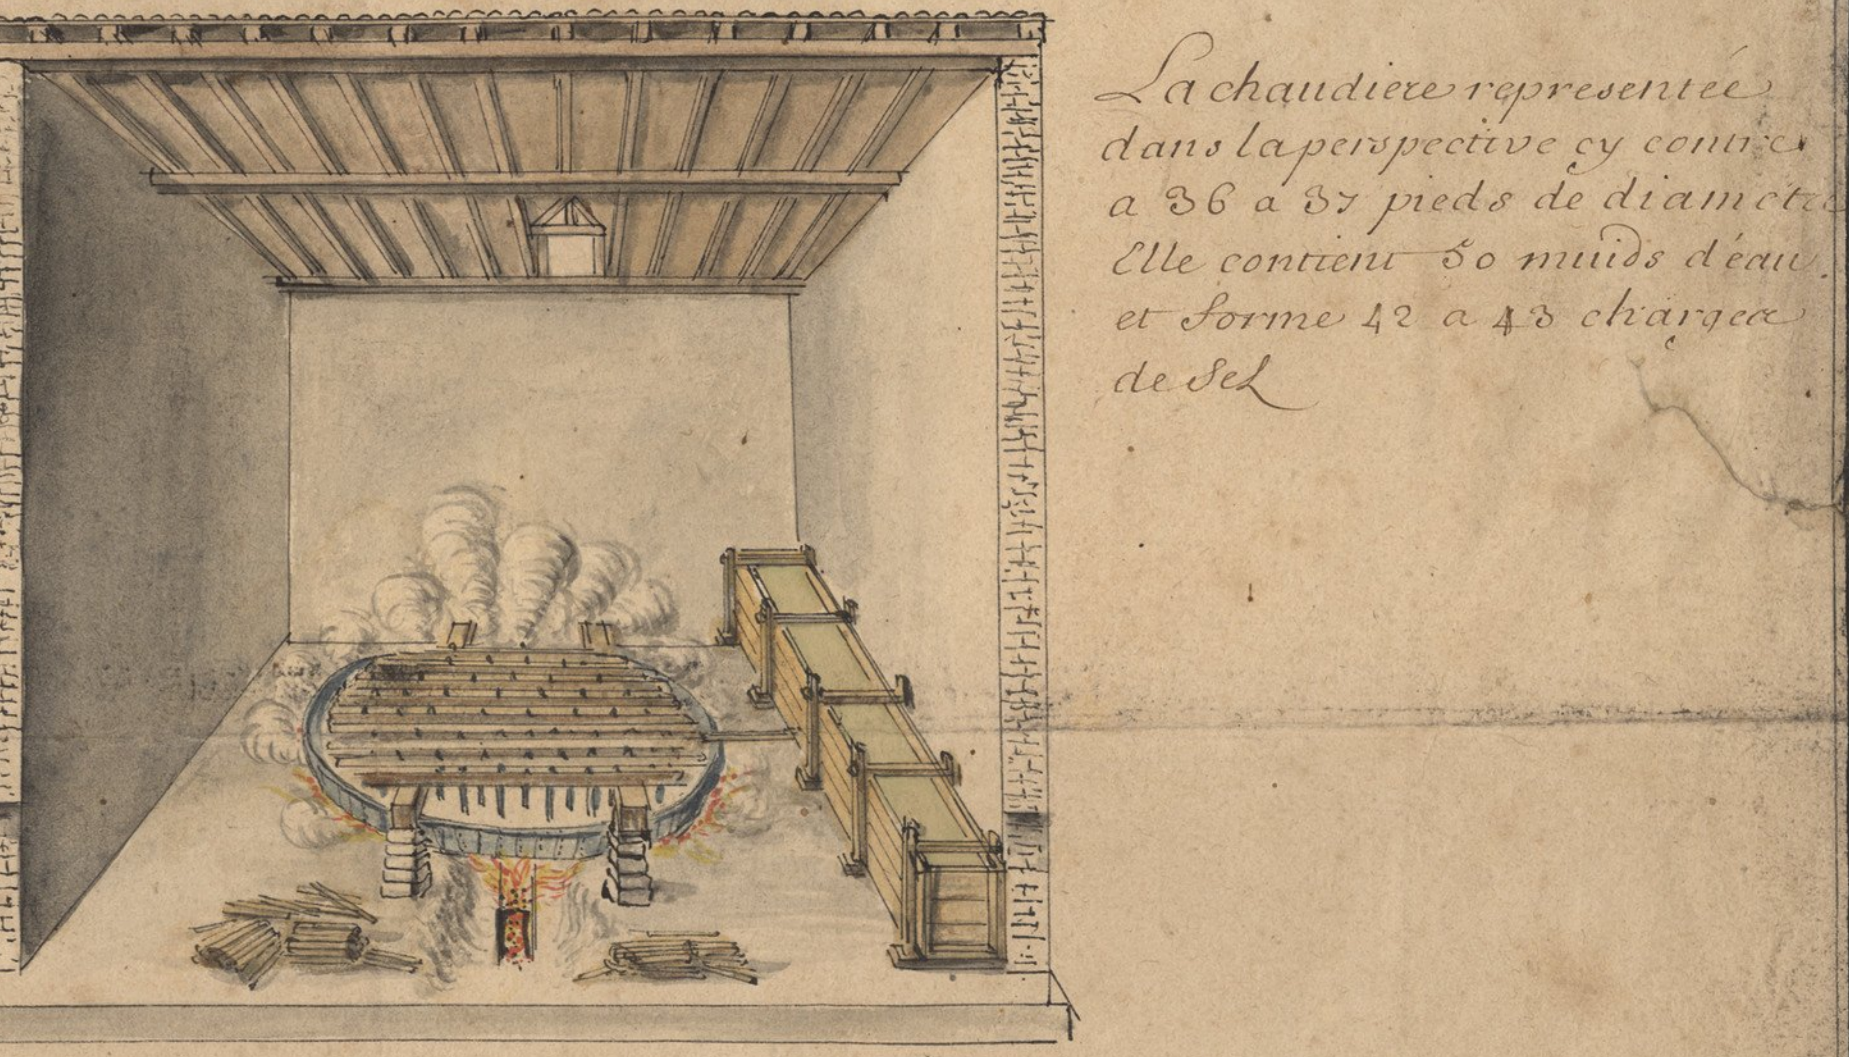 La chaudiere representée
dans la perspective cy contre
a 36 a 37 pieds de diametre
Elle contient 50 muids d'éau.
et forme 42 a 43 charges
de Sel